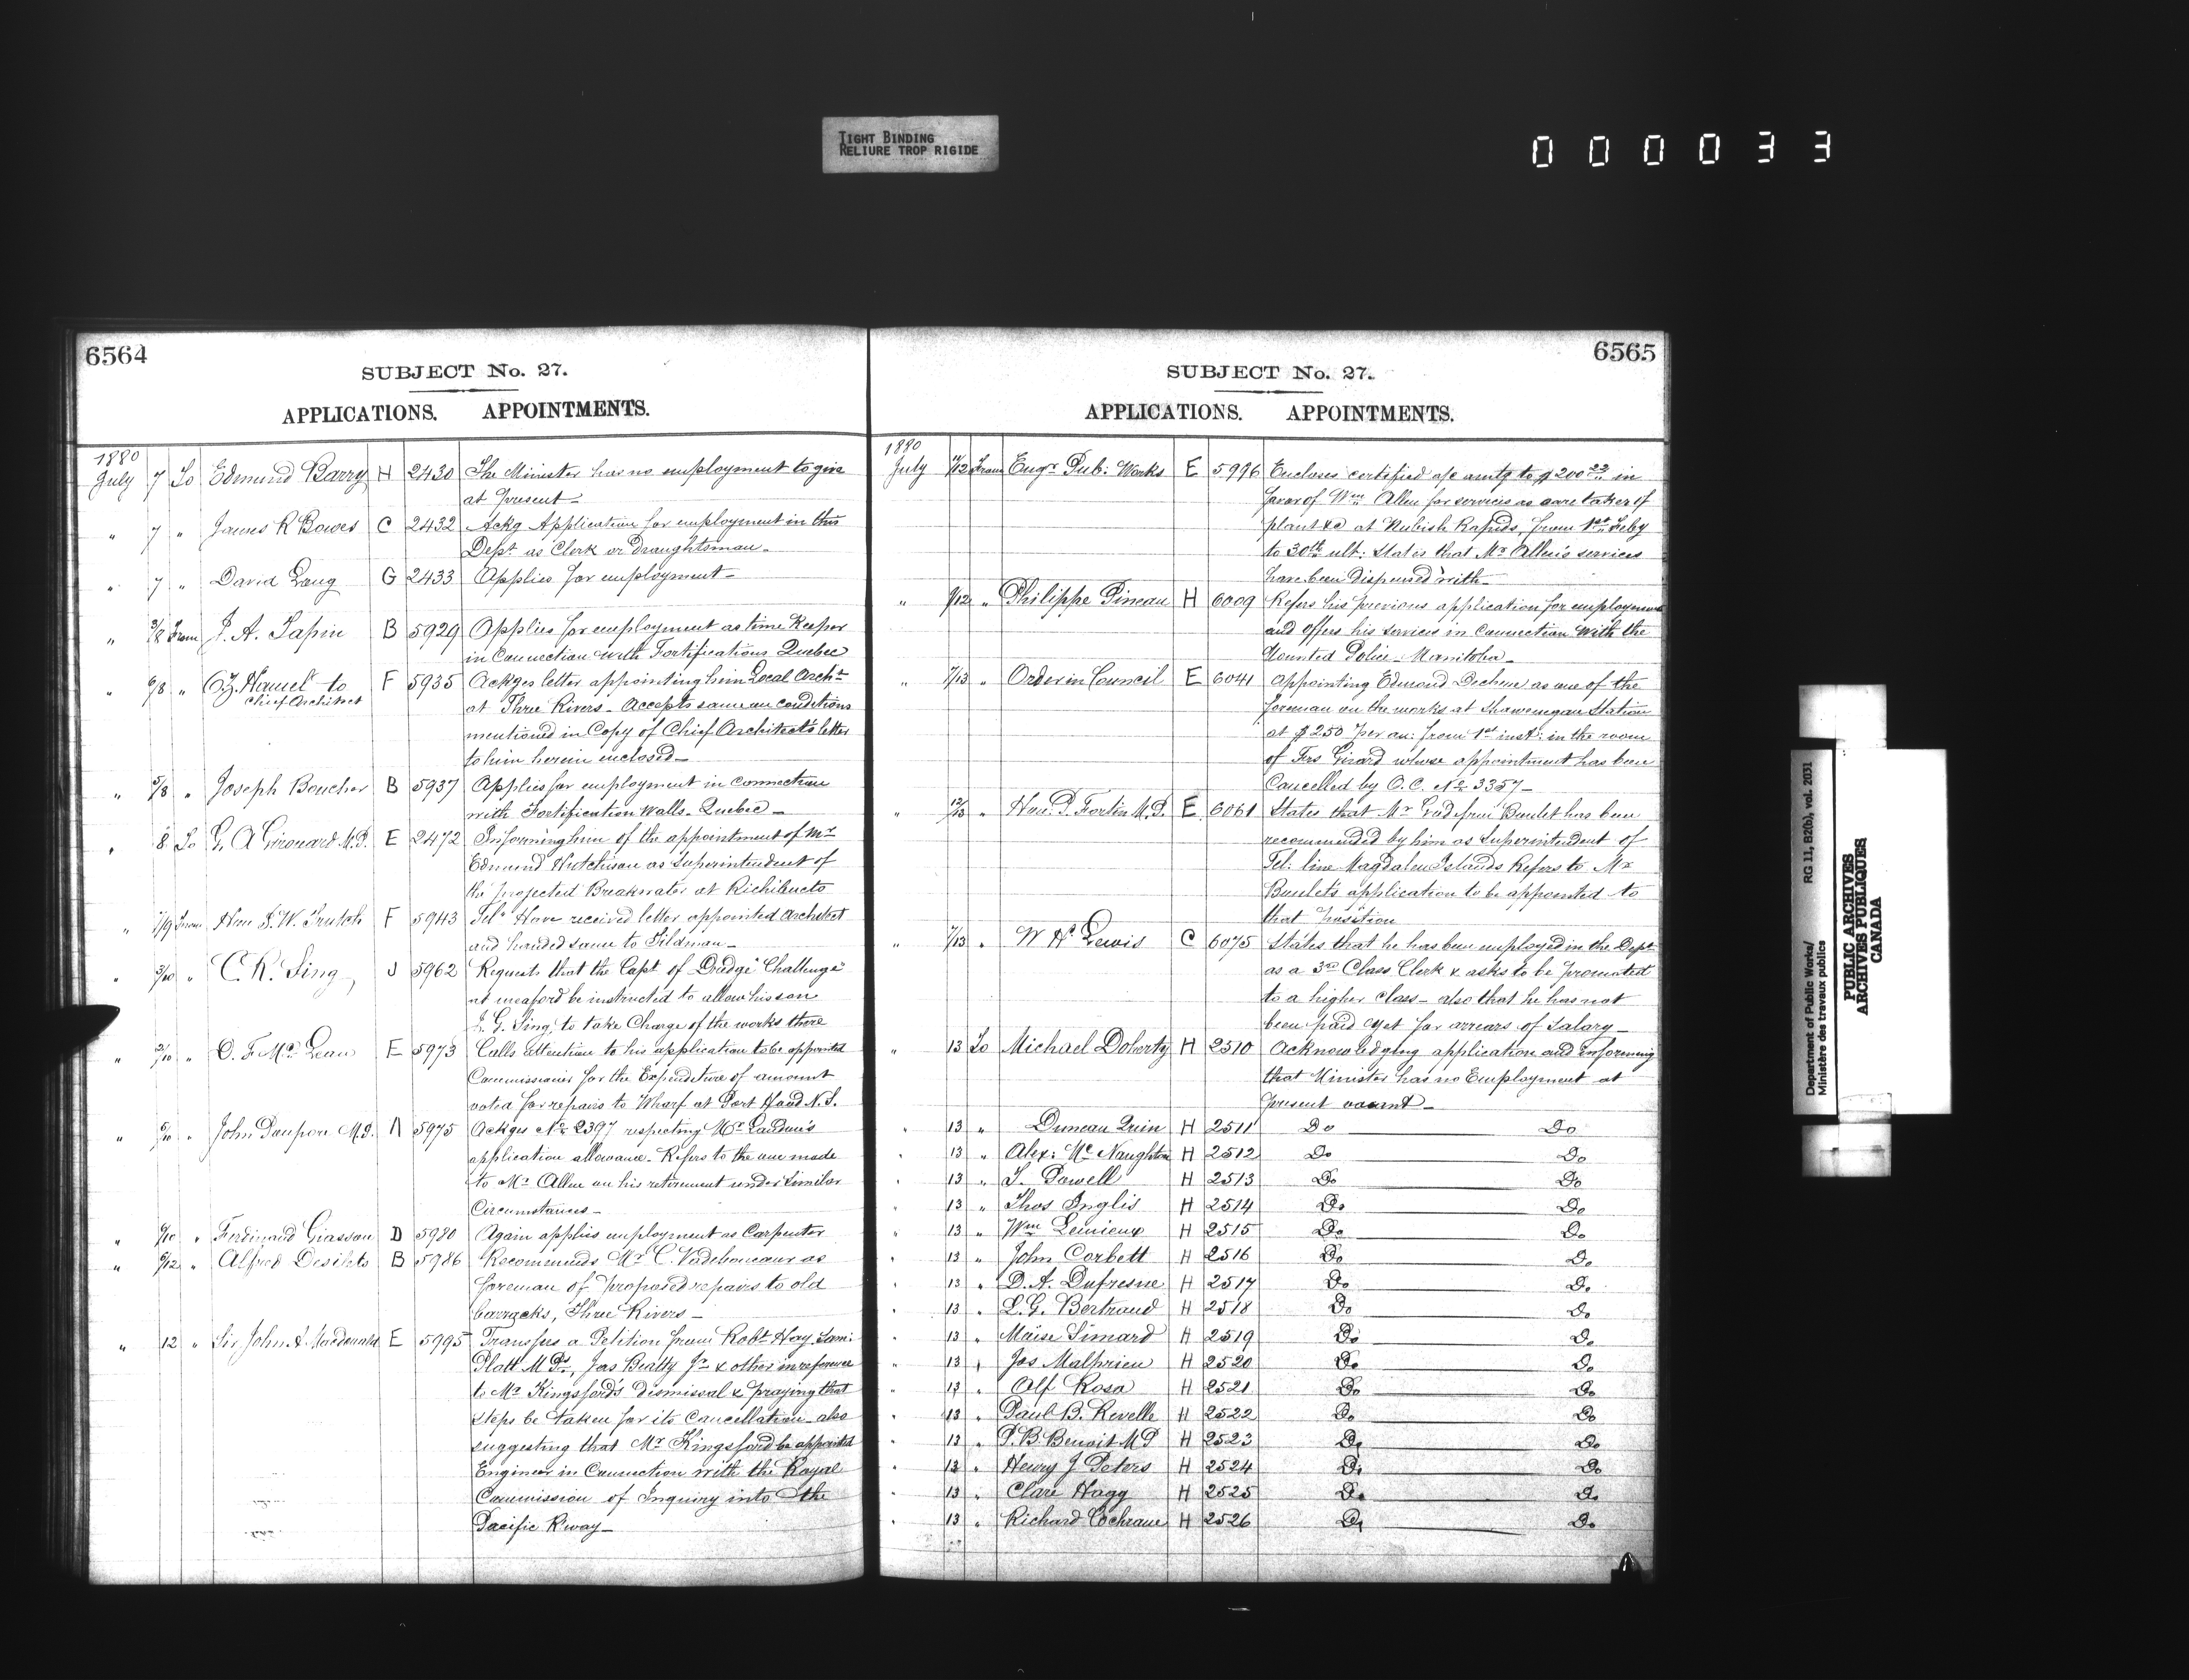 TIGHT BINDING
RELIURE TROP RIGIDE
000033
6564
SUBJECT No. 27.
APPLICATIONS. APPOINTMENTS.
1880
July 7 To Edmund Barry H 2430 The Minister has no employment to give
at present -
" 7 " James R Bowes C 2432 Ackg Application for employment in this
Dept as Clerk or Draughtsman -
" 7 " David Lang G 2433 Applies for employment -
" 3/8 From J. A. Sapin B 5929 Applies for employment as time Keeper
in Connection with Fortifications Quebec
" 6/8 " Oz. Hamel to F 5935 Ackges letter appointing him Local Archt
Chief Architect at Three Rivers - Accepts same on conditions
mentioned in Copy of Chief Architect's letter
to him herein enclosed -
" 5/8 " Joseph Boucher B 5937 Applies for employment in connection
with Fortification Walls - Quebec -
" 8 To G. A Girouard M.P. E 2472 Informing him of the appointment of Mr
Edmund Hutchison as Superintendent of
the projected Breakwater at Richibucto
" 7/9 From Hon J. W. Trutch F 5943 Tel: Have received letter appointed Architect
and handed same to Tildman -
" 3/10 " C. R. Sing J 5962 Requests that the Capt of Dredge "Challenge"
at meaford be instructed to allow his son
J. G. Sing, to take Charge of the works there
" 2/10 " D. F. McLean E 5973 Calls attention to his application to be appointed
Commissioner for the Expenditure of amount
voted for repairs to Wharf at Port Hood N.S.
" 5/10 " John Poupore M.P. A 5975 Ackges No 2397 respecting Mr Landon's
application allowance - Refers to the one made
to Mr Allen on his retirement under similar
Circumstances -
" 6/10 " Ferdinand Giasson D 5980 Again applies employment as Carpenter
" 6/12 " Alfred Desilets B 5986 Recommends Mr C. Vadeboncoeur as
foreman of proposed repairs to old
barracks, Three Rivers -
" 12 " Sir John A. Macdonald E 5995 Transfers a Petition from Robt Hay, Sam:
Platt M Ps, Jas Beatty Jr & other in reference
to Mr Kingsford's dismissal & praying that
steps be taken for its Cancellation - also
suggesting that Mr Kingsford be appointed
Engineer in Connection with the Royal
Commission of Inquiry into the
Pacific R'way -
6565
SUBJECT No. 27.
APPLICATIONS. APPOINTMENTS.
1880
July /12 From Engr Pub: Works E 5996 Encloses certified a/c amtg to $200 in
favor of Wm Allen for services as care taker of
plant &c at Rapids, from 1st Feby
to 30th ult: States that Mr Allen's services
have been dispensed with -
" 9/12 " Philippe Pineau H 6009 Refers his previous application for employment
and offers his services in Connection with the
Mounted Police - Manitoba -
" 7/13 " Order in Council E 6041 appointing Edmond Dechene as one of the
foreman on the works at Shawenegan Station
at $250 per an: from 1st inst: in the room
of Frs Girard whose appointment has been
Cancelled by O.C. No 3357 -
" 12/13 " Hon: P. Fortin M.P. E 6061 States that Mr Boulet has been
recommended by him as Superintendent of
Tel: line Magdalen Islands Refers to Mr
Boulet's application to be appointed to
that position
" 7/13 " W H Lewis C 6075 States that he has been employed in the Dept
as a 3rd Class Clerk & asks to be promoted
to a higher class - also that he has not
been paid yet for arrears of Salary -
" 13 To Michael Doherty H 2510 Acknowledging application and informing
that Minister has no Employment at
present vacant -
" 13 " Duncan Quin H 2511 Do Do
" 13 " Alex: McNaughton H 2512 Do Do
" 13 " T. Powell H 2513 Do Do
" 13 " Thos Inglis H 2514 Do Do
" 13 " Wm Lemieux H 2515 Do Do
" 13 " John Corbett H 2516 Do Do
" 13 " D. A. Dufresne H 2517 Do Do
" 13 " L. G. Bertrand H 2518 Do Do
" 13 " Moise Simard H 2519 Do Do
" 13 " Jos Malprieu H 2520 Do Do
" 13 " Alf Rosa H 2521 Do Do
" 13 " Paul B. Revelle H 2522 Do Do
" 13 " P. B. Benoit M P H 2523 Do Do
" 13 " Henry J Peters H 2524 Do Do
" 13 " Clare Hagg H 2525 Do Do
" 13 " Richard Cochrane H 2526 Do Do
Department of Public Works/ RG 11, B2(b), vol. 2031
Ministère des travaux publics
PUBLIC ARCHIVES
ARCHIVES PUBLIQUES
CANADA